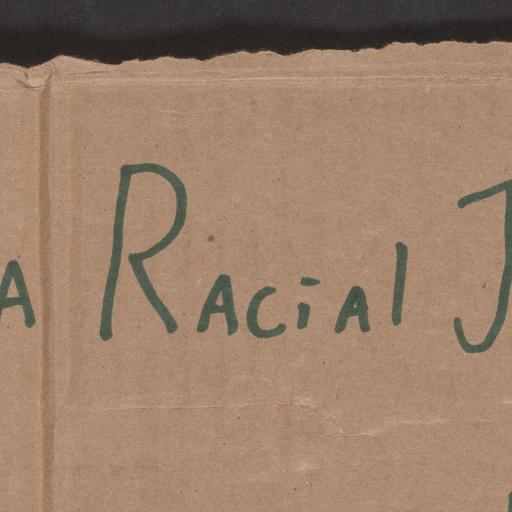 A Racial J